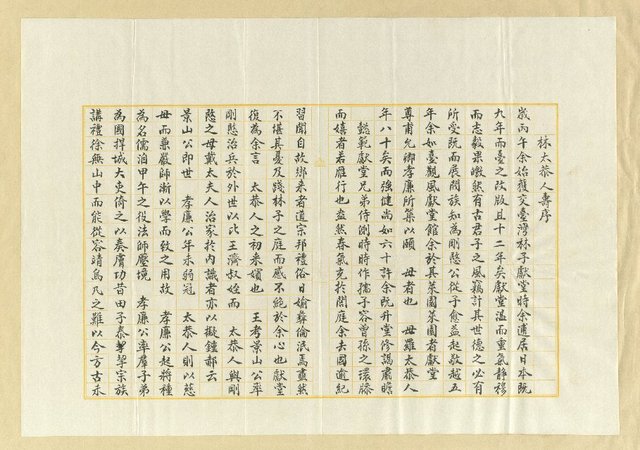 林太恭人壽序
歲丙午余始獲交臺灣林子獻堂時余適居日本既
九年而臺之改版且十二年矣獻堂溫而重氣靜穆
而志毅果暾然有古君子之風竊計其世德之必有
所受既而展問族知為剛愍公從子愈益起敬越五
年余如臺觀風獻堂館余於其萊園萊園者獻堂
尊甫允卿孝廉所築以頤　母者也　母羅太恭人
年八十矣而強健尚如六十許余既升堂修謁肅瞻
懿範獻堂兄弟侍側時時作孺子容曾孫之環膝
而嬉者若雁行也盎然春氣充於閎庭余去國逾紀
習聞自故鄉來者道宗邦禮俗日媮彝倫泯焉盡然
不堪其憂及踐林子之庭而感不絕於余心也獻堂
復為余言　太恭人之初來嬪也　王考景山公率
剛愍治兵於外世以比王濟叔姪而　太恭人與剛
愍之母戴太夫人治家於內識者亦以擬鍾郝云
景山公即世　孝廉公年未弱冠　太恭人則以慈
母而兼嚴師漸以學而致之用故　孝廉公起將種
為名儒洎甲午之役法師壓境　孝廉公率羣子弟
為國捍城大吏倚之以奏膚功昔田子泰挈宗族
講禮徐無山中而能從容靖烏凡之難以今方古永